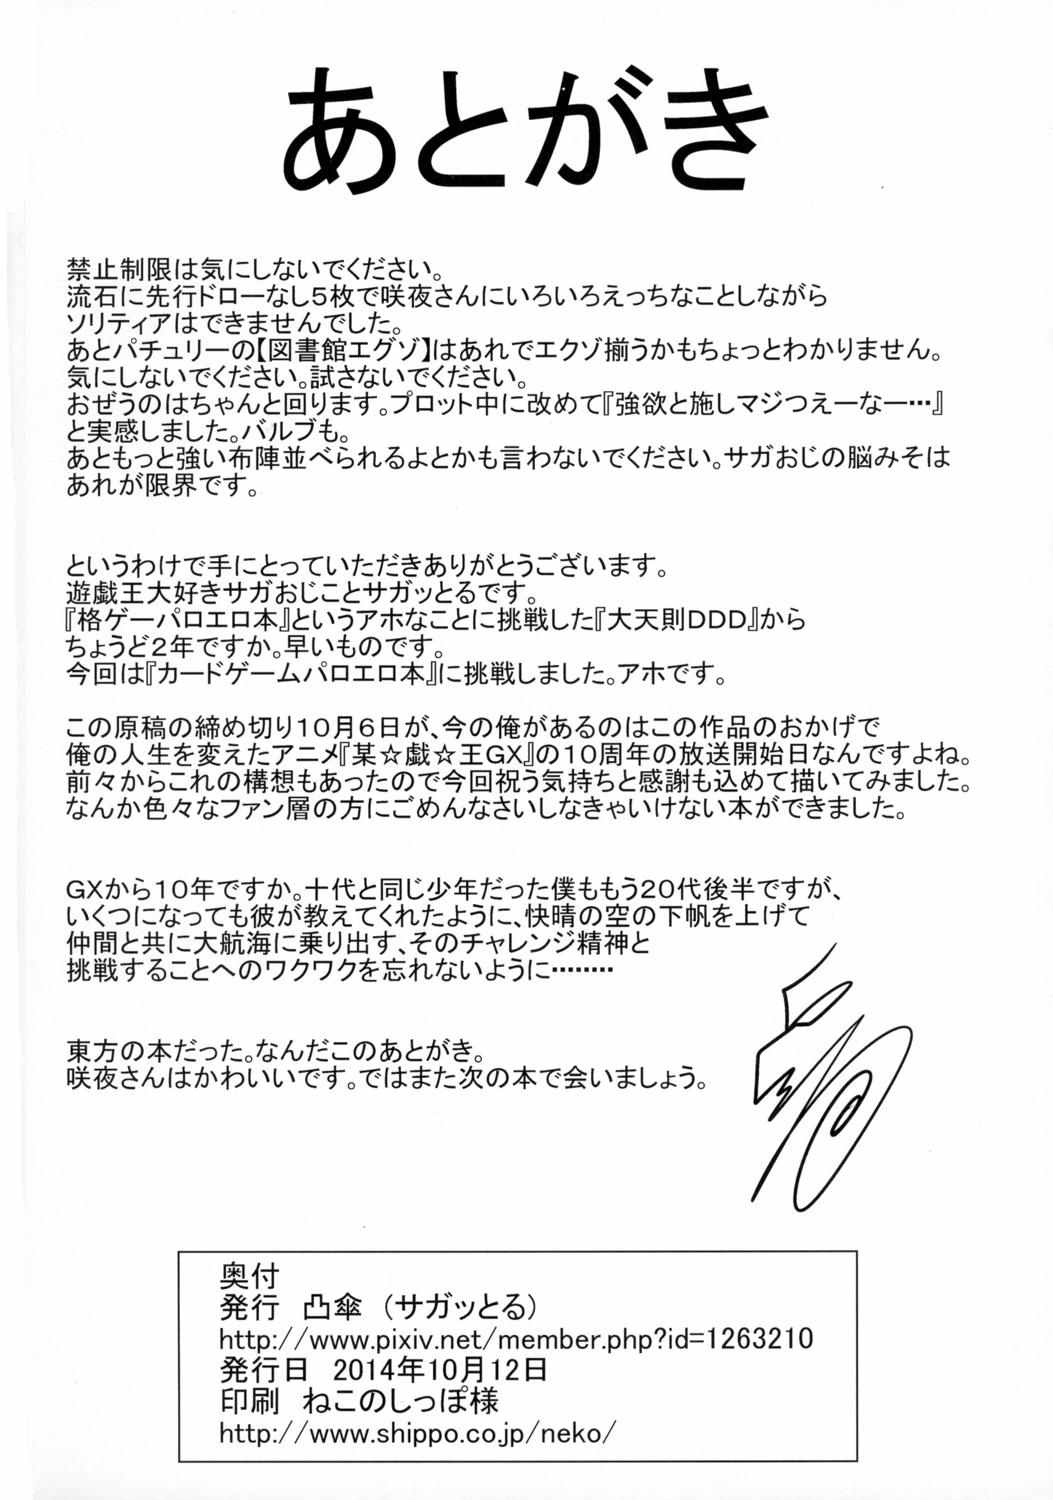 あとがき
禁止制限は気にしないでください。
流石に先行ドローなし5枚で咲夜さんにいろいろえっちなことしながら
ソリティアはできませんでした。
あとパチュリーの【図書館エグゾ】はあれでエクゾ揃うかもちょっとわかりません。
気にしないでください。試さないでください。
おぜうのはちゃんと回ります。プロット中に改めて『強欲と施しマジつえーなー…』
と実感しました。バルブも。
あともっと強い布陣並べられるよとかも言わないでください。サガおじの脳みそは
あれが限界です。
というわけで手にとっていただきありがとうございます。
遊戯王大好きサガおじことサガッとるです。
『格ゲーパロエロ本』というアホなことに挑戦した『大天則DDD』から
ちょうど2年ですか。早いものです。
今回は『カードゲームパロエロ本』に挑戦しました。アホです。
この原稿の締め切り10月6日が、今の俺があるのはこの作品のおかげで
俺の人生を変えたアニメ『某☆戯☆王GX』の10周年の放送開始日なんですよね。
前々からこれの構想もあったので今回祝う気持ちと感謝も込めて描いてみました。
なんか色々なファン層の方にごめんなさいしなきゃいけない本ができました。
GXから10年ですか。十代と同じ少年だった僕ももう20代後半ですが、
いくつになっても彼が教えてくれたように、快晴の空の下帆を上げて
仲間と共に大航海に乗り出す、そのチャレンジ精神と
挑戦することへのワクワクを忘れないように………
東方の本だった。なんだこのあとがき。
咲夜さんはかわいいです。ではまた次の本で会いましょう。
奥付
発行　凸傘　（サガッとる）
http://www.pixiv.net/member.php?id=1263210
発行日　2014年10月12日
印刷　ねこのしっぽ様
http://www.shippo.co.jp/neko/